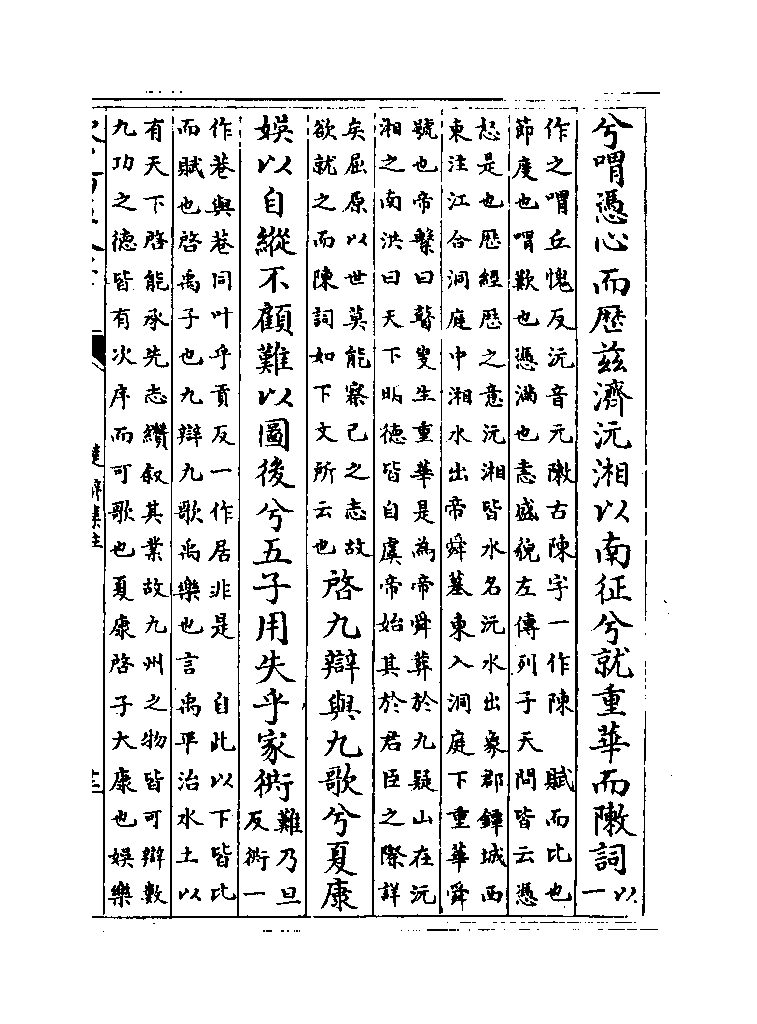 兮喟憑心而歷茲濟沅湘以南征兮就重華而敶詞以一
作之喟丘愧反沅音元敶古陳字一作陳　賦而比也
節度也喟歎也憑滿也恚盛貌左傳列子天問皆云憑
怒是也歷經歷之意沅湘皆水名沅水出象郡鐔城西
東注江合洞庭中湘水出帝舜墓東入洞庭下重華舜
號也帝繫曰瞽叟生重華是為帝舜葬於九疑山在沅
湘之南洪曰天下明德皆自虞帝始其於君臣之際詳
矣屈原以世莫能察己之志故
欲就之而陳詞如下文所云也
啓九辯與九歌兮夏康
娛以自縱不顧難以圖後兮五子用失乎家衖
難乃旦
反衖一
作巷與巷同叶乎貢反一作居非是　自此以下皆比
而賦也啓禹子也九辯九歌禹樂也言禹平治水土以
有天下啓能承先志纘叙其業故九州之物皆可辯數
九功之德皆有次序而可歌也夏康啓子太康也娛樂
楚辭集註